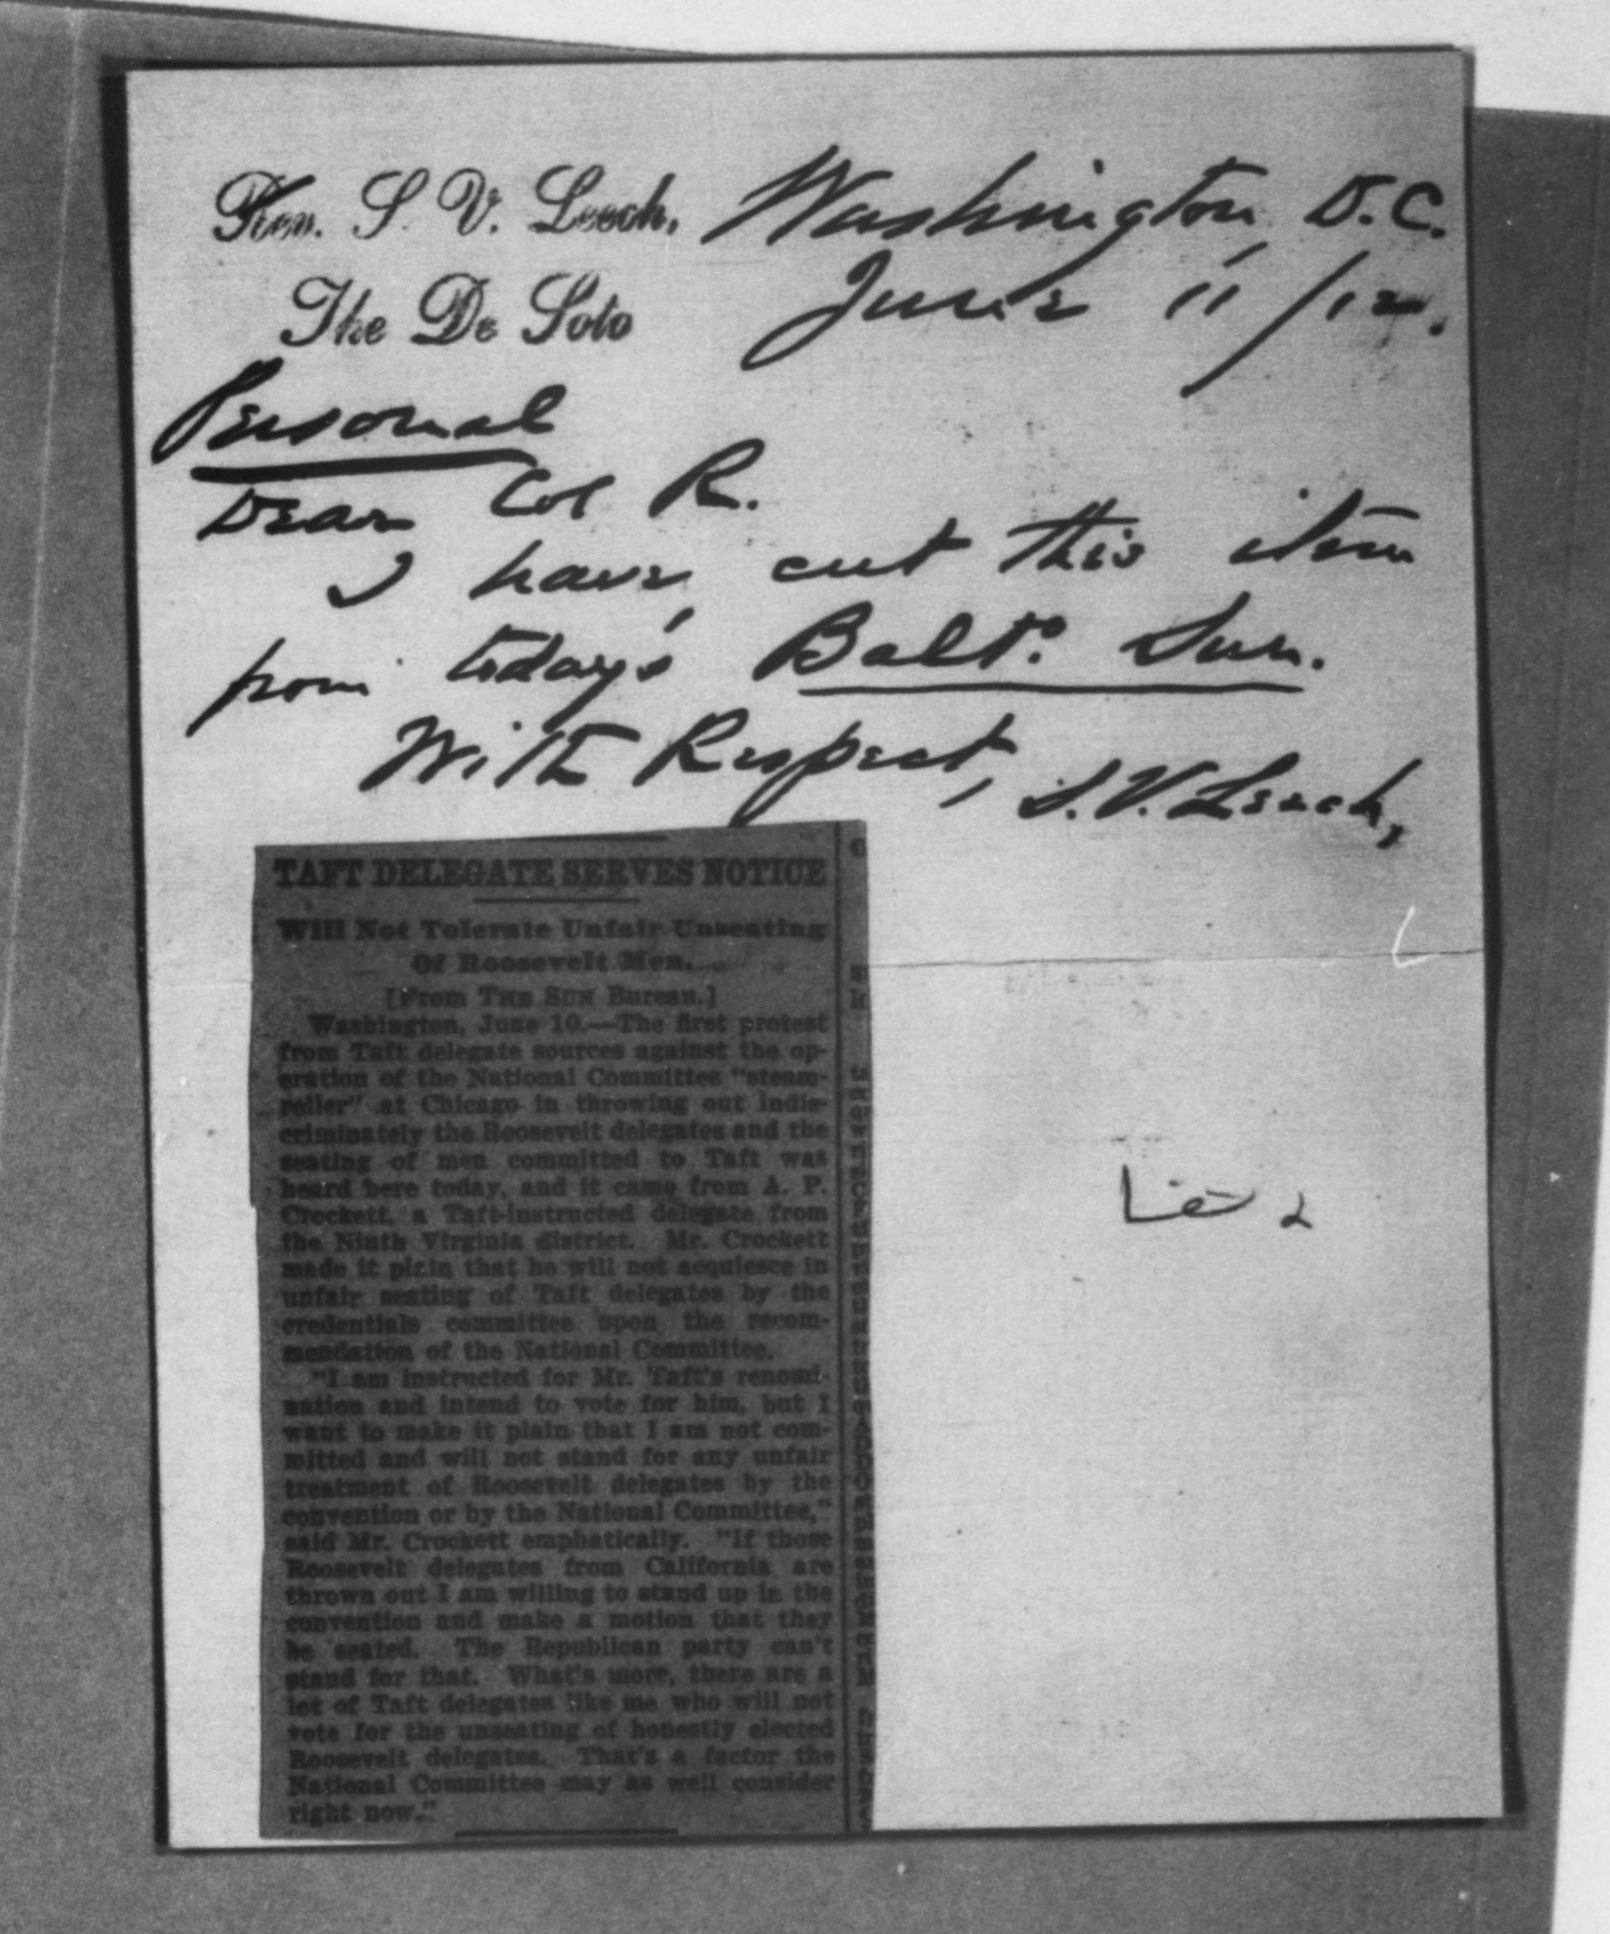 Rev. S. V. Leech,
The De Soto
Washington D.C.
June 11/12.
Personal
Dear Col R.
I have cut this item
from today's Balto. Sun.
With Respect, S. V. Leech,
TAFT DELEGATE SERVES NOTICE
Will Not Tolerate Unfair Unseating
Of Roosevelt Men.
[From THE SUN Bureau.]
Washington, June 10.—The first protest
from Taft delegate sources against the op-
eration of the National Committee "steam-
roller" at Chicago in throwing out indis-
criminately the Roosevelt delegates and the
seating of men committed to Taft was
heard here today, and it came from A. P.
Crockett, a Taft-instructed delegate from
the Ninth Virginia district. Mr. Crockett
made it plain that he will not acquiesce in
unfair seating of Taft delegates by the
credentials committee upon the recom-
mendation of the National Committee.
"I am instructed for Mr. Taft's renomi-
nation and intend to vote for him, but I
want to make it plain that I am not com-
mitted and will not stand for any unfair
treatment of Roosevelt delegates by the
convention or by the National Committee,"
said Mr. Crockett emphatically. "If those
Roosevelt delegates from California are
thrown out I am willing to stand up in the
convention and make a motion that they
be seated. The Republican party can't
stand for that. What's more, there are a
lot of Taft delegates like me who will not
vote for the unseating of honestly elected
Roosevelt delegates. That's a factor the
National Committee may as well consider
right now."